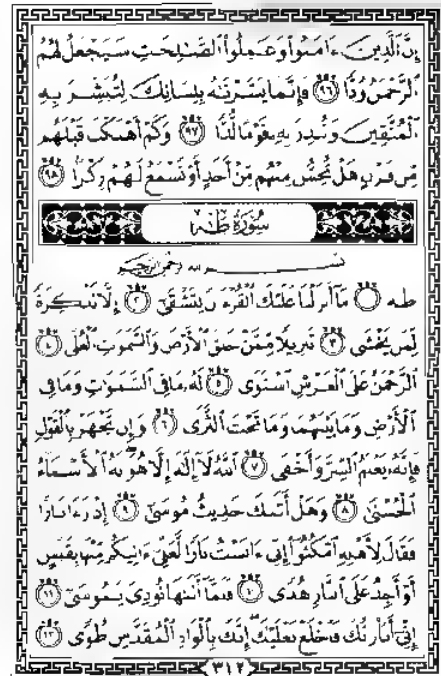 إِنَّ ٱلَّذِينَ ءَامَنُوا۟ وَعَمِلُوا۟ ٱلصَّـٰلِحَـٰتِ سَيَجْعَلُ لَهُمُ
ٱلرَّحْمَـٰنُ وُدًّا ٩٦ فَإِنَّمَا يَسَّرْنَـٰهُ بِلِسَانِكَ لِتُبَشِّرَ بِهِ
ٱلْمُتَّقِينَ وَتُنذِرَ بِهِۦ قَوْمًا لُّدًّا ٩٧ وَكَمْ أَهْلَكْنَا قَبْلَهُم
مِّن قَرْنٍ هَلْ تُحِسُّ مِنْهُم مِّنْ أَحَدٍ أَوْ تَسْمَعُ لَهُمْ رِكْزًۢا ٩٨
سُورَةُ طه
بِسْمِ ٱللَّهِ ٱلرَّحْمَـٰنِ ٱلرَّحِيمِ
طه ١ مَآ أَنزَلْنَا عَلَيْكَ ٱلْقُرْءَانَ لِتَشْقَىٰٓ ٢ إِلَّا تَذْكِرَةً
لِّمَن يَخْشَىٰ ٣ تَنزِيلًا مِّمَّنْ خَلَقَ ٱلْأَرْضَ وَٱلسَّمَـٰوَٰتِ ٱلْعُلَى ٤
ٱلرَّحْمَـٰنُ عَلَى ٱلْعَرْشِ ٱسْتَوَىٰ ٥ لَهُۥ مَا فِى ٱلسَّمَـٰوَٰتِ وَمَا فِى
ٱلْأَرْضِ وَمَا بَيْنَهُمَا وَمَا تَحْتَ ٱلثَّرَىٰ ٦ وَإِن تَجْهَرْ بِٱلْقَوْلِ
فَإِنَّهُۥ يَعْلَمُ ٱلسِّرَّ وَأَخْفَى ٧ ٱللَّهُ لَآ إِلَـٰهَ إِلَّا هُوَ لَهُ ٱلْأَسْمَآءُ
ٱلْحُسْنَىٰ ٨ وَهَلْ أَتَىٰكَ حَدِيثُ مُوسَىٰٓ ٩ إِذْ رَءَا نَارًا
فَقَالَ لِأَهْلِهِ ٱمْكُثُوٓا۟ إِنِّىٓ ءَانَسْتُ نَارًا لَّعَلِّىٓ ءَاتِيكُم مِّنْهَا بِقَبَسٍ
أَوْ أَجِدُ عَلَى ٱلنَّارِ هُدًى ١٠ فَلَمَّآ أَتَىٰهَا نُودِىَ يَـٰمُوسَىٰٓ ١١
إِنِّىٓ أَنَا۠ رَبُّكَ فَٱخْلَعْ نَعْلَيْكَ إِنَّكَ بِٱلْوَادِ ٱلْمُقَدَّسِ طُوًى ١٢
٣١٢